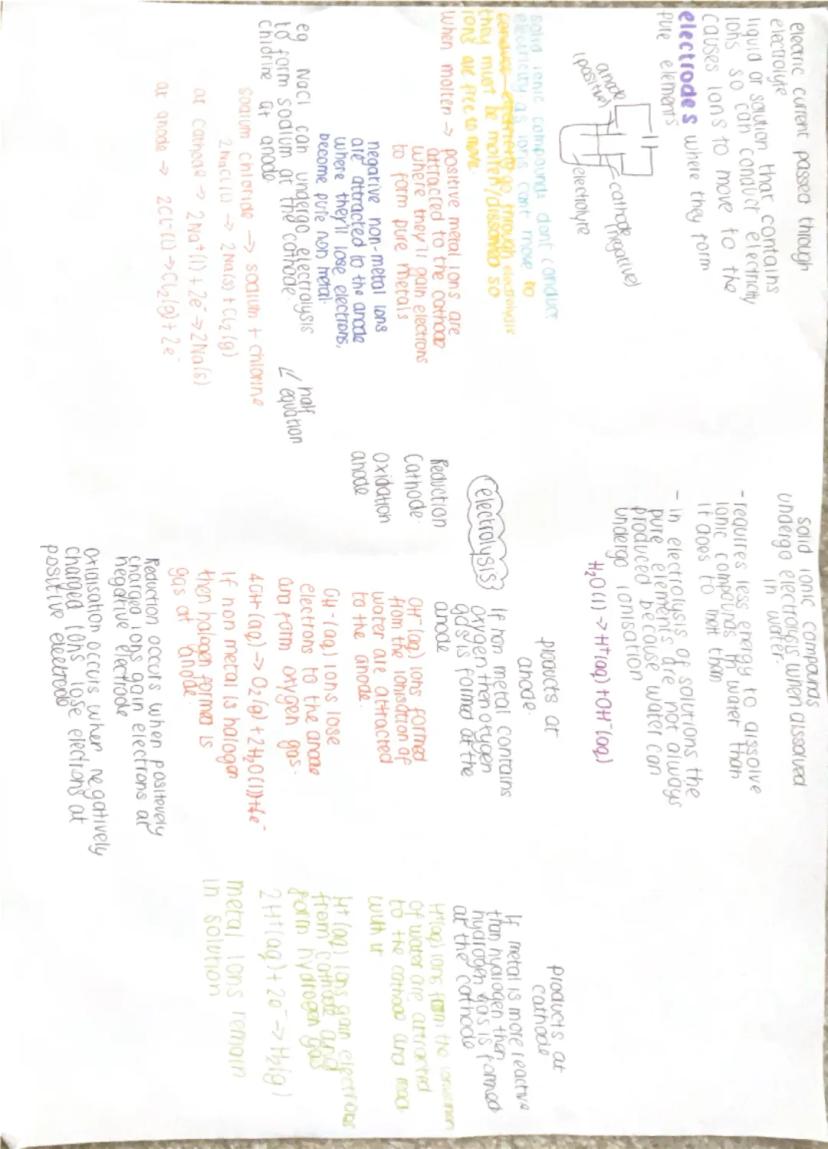 electric current passed through
electrolyte
liquid or solution that contains
ions so can conduct electricity
causes ions to move to the
electrodes where they form
pure elements
anode
(positive)
cathode
(negative)
electrolyte
solid ionic compounds dont conduct
electricity as ions cant move to
conduct electricity go through electrolysis
they must be molten/dissolved so
ions are free to move.
when molten → positive metal ions are
attracted to the cathode
where they'll gain electrons
to form pure metals
negative non-metal ions
are attracted to the anode
where they'll lose electrons,
become pure non metal.
eg NaCl can undergo electrolysis
to form sodium at the cathode.
chlorine at anode
sodium chloride → sodium + chlorine
2NaCl(l) → 2Na(s) + Cl₂(g)
at cathode → 2Na⁺(l) + 2e⁻ → 2Na(s)
at anode → 2Cl⁻(l) → Cl₂(g) + 2e⁻
half
equation
Reduction
Cathode
Oxidation
anode
electrolysis
solid ionic compounds
undergo electrolysis when dissolved
in water.
- requires less energy to dissolve
ionic compounds in water than
it does to melt than
- in electrolysis of solutions the
pure elements are not always
produced because water can
undergo ionisation
H₂O(l) → H⁺(aq) + OH⁻(aq)
products at
anode.
If non metal contains
oxygen then oxygen
gas is formed at the
anode
OH⁻(aq) ions formed
from the ionisation of
water are attracted
to the anode.
OH⁻(aq) ions lose
electrons to the anode
and form oxygen gas.
4OH⁻(aq) → O₂(g) + 2H₂O(l) + 4e⁻
If non metal is halogen
then halogen formed is
gas at anode.
Reduction occurs when positevely
charged ions gain electrons at
negative electrode
Oxidisation occurs when negatively
charged ions lose elections at
positive electrode
products at
cathode
If metal is more reactive
than hydrogen then
hydrogen gas is formed
at the cathode
H⁺(aq) ions from the ionisation
of water are attracted
to the cathode and react
with it
H⁺(aq) ions gain electrons
from cathode and
form hydrogen gas
2H⁺(aq) + 2e⁻ → H₂(g)
metal ions remain
in solution